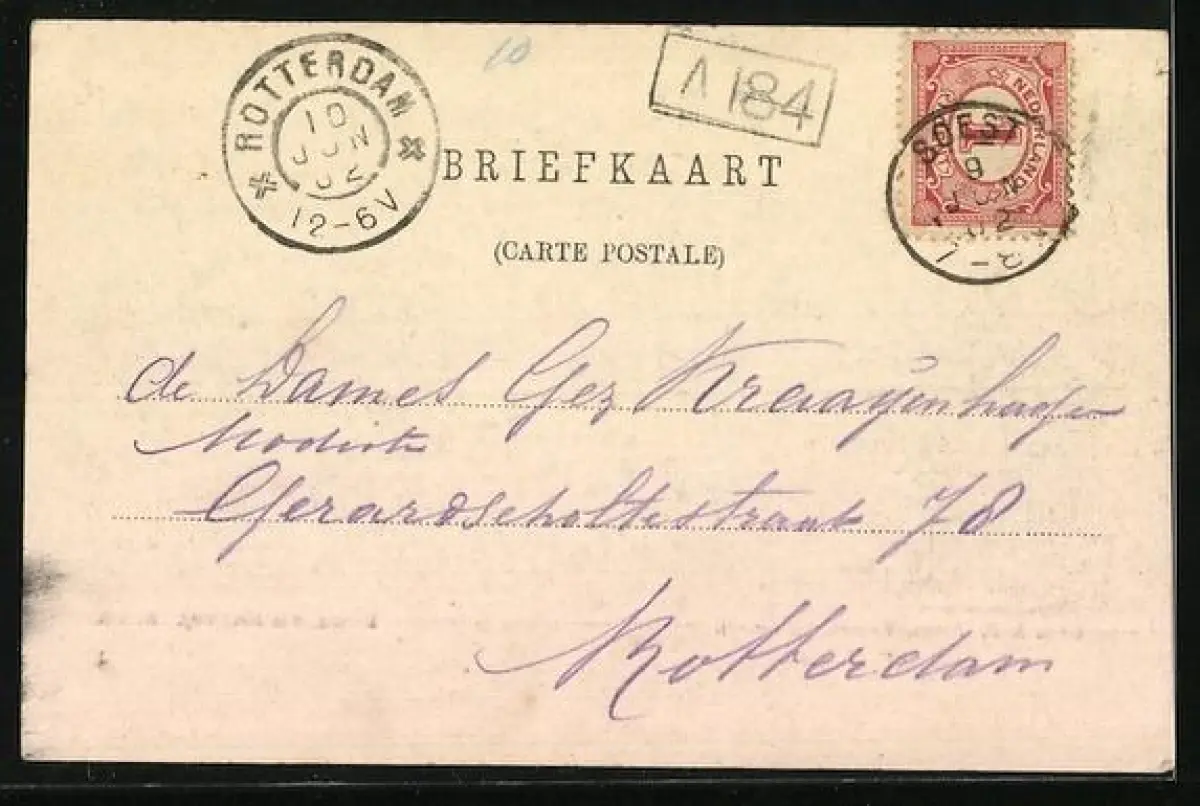 ROTTERDAM
10
JUN
02
12-6V
10
A 184
NEDERLAND
1
SOEST
9
JUN
02
BRIEFKAART
(CARTE POSTALE)
de Dames Gez Kraayenhagen
Modiste
Gerardscholtestraat 78
Rotterdam